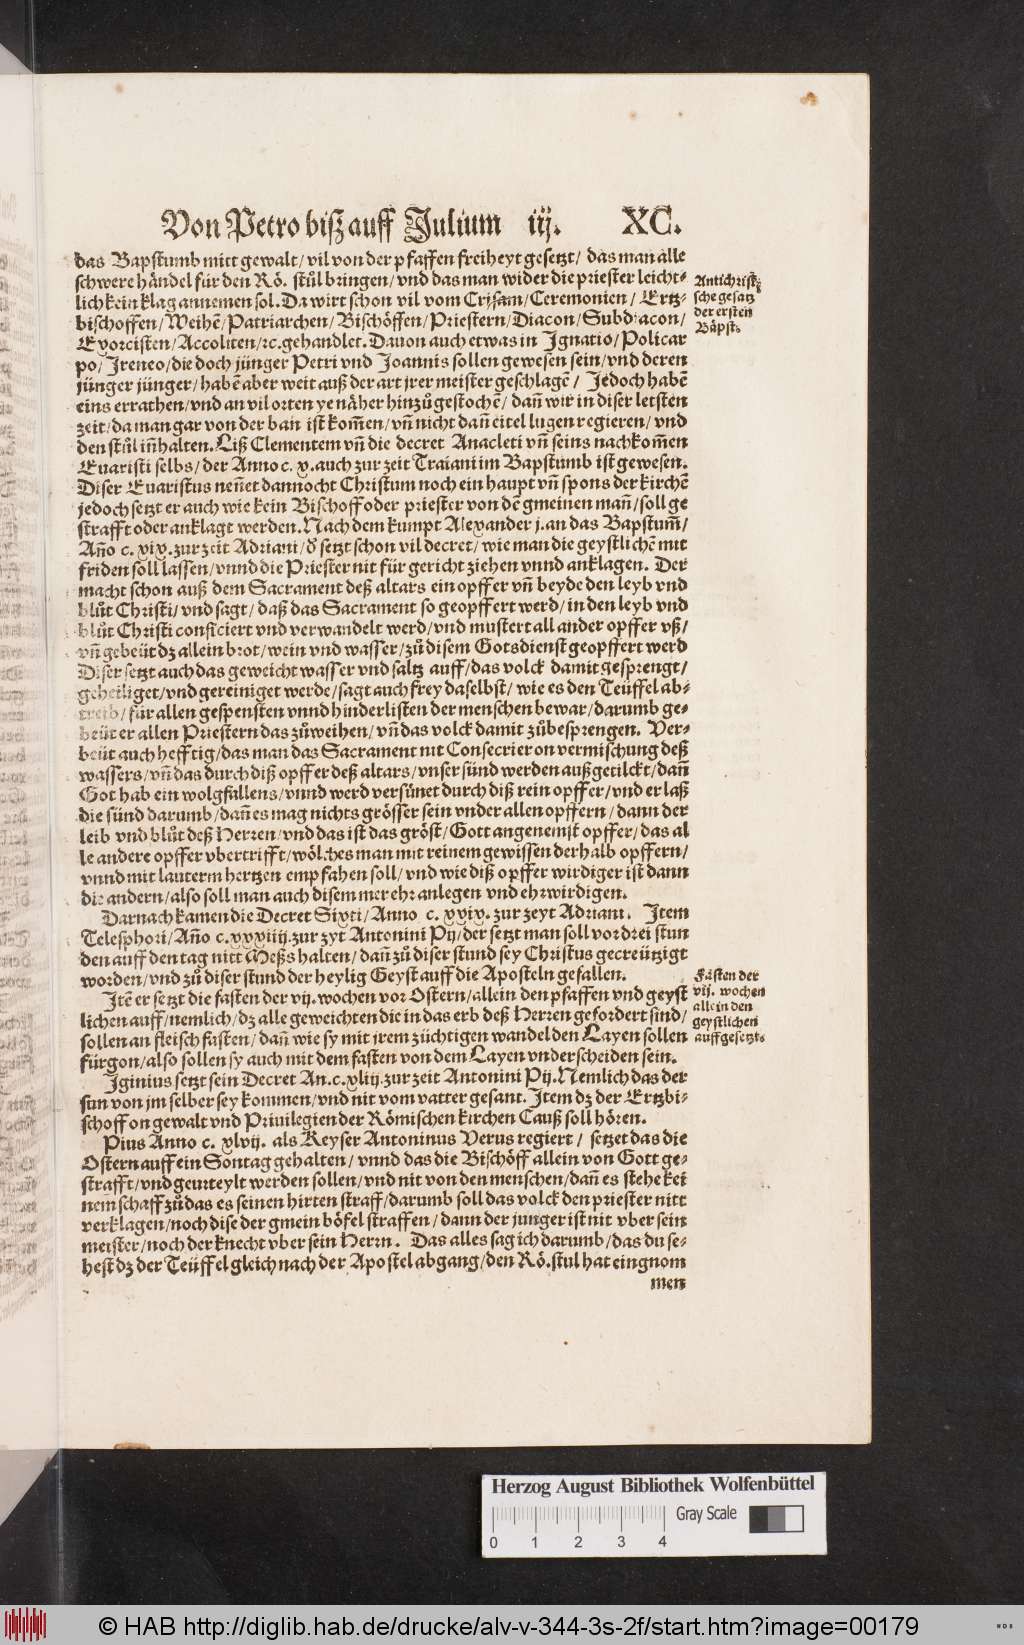 Von Petro biß auff Julium iij. XC.
das Bapstumb mitt gewalt/ vil von der pfaffen freiheyt gesetzt/ das man alle
schwere händel für den Rö. stůl bringen/ vnd das man wider die priester leicht-
lich kein klag annemen sol. Da wirt schon vil vom Crisam/ Ceremonien/ Ertz-
bischoffen/ Weihē/ Patriarchen/ Bischöffen/ Priestern/ Diacon/ Subdiacon/
Exorcisten/ Accoliten/ ꝛc. gehandlet. Dauon auch etwas in Ignatio/ Policar
po/ Ireneo/ die doch jünger Petri vnd Joannis sollen gewesen sein/ vnd deren
jünger jünger/ habē aber weit auß der art jrer meister geschlagē/ Jedoch habē
eins errathen/ vnd an vil orten ye näher hinzůgestochē/ dañ wir in diser letsten
zeit/ da man gar von der ban ist kom̄en/ vñ nicht dañ eitel lugen regieren/ vnd
den stůl iñhalten. Liß Clementem vñ die decret Anacleti vñ seins nachkom̄en
Euaristi selbs/ der Anno c. x. auch zur zeit Traiani im Bapstumb ist gewesen.
Diser Euaristus neñet dannocht Christum noch ein haupt vñ spons der kirchē
jedoch setzt er auch wie kein Bischoff oder priester von dē gmeinen mañ/ soll ge
strafft oder anklagt werden. Nach dem kumpt Alexander j. an das Bapstum̄/
Año c. xix. zur zeit Adriani/ d' setzt schon vil decret/ wie man die geystlichē mit
friden soll lassen/ vnnd die Priester nit für gericht ziehen vnnd anklagen. Der
macht schon auß dem Sacrament deß altars ein opffer vñ beyde den leyb vnd
blůt Christi/ vnd sagt/ daß das Sacrament so geopffert werd/ in den leyb vnd
blůt Christi conficiert vnd verwandelt werd/ vnd mustert all ander opffer vß/
vñ gebeüt dz allein brot/ wein vnd wasser/ zů disem Gotsdienst geopffert werd
Diser setzt auch das geweicht wasser vnd saltz auff/ das volck damit gesprengt/
geheiliget/ vnd gereiniget werde/ sagt auch frey daselbst/ wie es den Teüffel ab-
treib/ für allen gespensten vnnd hinderlisten der menschen bewar/ darumb ge-
beüt er allen Priestern das zůweihen/ vñ das volck damit zůbesprengen. Ver-
beüt auch hefftig/ das man das Sacrament nit Consecrier on vermischung deß
wassers/ vñ das durch diß opffer deß altars/ vnser sünd werden außgetilckt/ dañ
Got hab ein wolgfallens/ vnnd werd versünet durch diß rein opffer/ vnd erlaß
die sünd darumb/ dañ es mag nichts grösser sein vnder allen opffern/ dann der
leib vnd blůt deß Herren/ vnd das ist das gröst/ Gott angenemst opffer/ das al
le andere opffer vbertrifft/ wölches man mit reinem gewissen derhalb opffern/
vnnd mit lauterm hertzen empfahen soll/ vnd wie diß opffer wirdiger ist dann
die andern/ also soll man auch disem mer ehr anlegen vnd ehrwirdigen.
Darnach kamen die Decret Sixti/ Anno c. xxix. zur zeyt Adriani. Item
Telesphori/ Año c. xxxiiij. zur zyt Antonini Pij/ der setzt man soll vor drei stun
den auff den tag nitt Meßs halten/ dañ zů diser stund sey Christus gecreützigt
worden/ vnd zů diser stund der heylig Geyst auff die Aposteln gefallen.
Itē er setzt die fasten der vij. wochen vor Ostern/ allein den pfaffen vnd geyst
lichen auff/ nemlich/ dz alle geweichten die in das erb deß Herren gefordert sind/
sollen an fleisch fasten/ dañ wie sy mit jrem züchtigen wandel den Layen sollen
fürgon/ also sollen sy auch mit dem fasten von dem Layen vnderscheiden sein.
Iginius setzt sein Decret An. c. xlij. zur zeit Antonini Pij. Nemlich das der
sun von jm selber sey kommen/ vnd nit vom vatter gesant. Item dz der Ertzbi-
schoff on gewalt vnd Priuilegien der Römischen kirchen Cauß soll hören.
Pius Anno c. xlvij. als Keyser Antoninus Verus regiert/ setzet das die
Ostern auff ein Sontag gehalten/ vnnd das die Bischöff allein von Gott ge-
strafft/ vnd geurteylt werden sollen/ vnd nit von den menschen/ dañ es stehe kei
nem schaff zů das es seinen hirten straff/ darumb soll das volck den priester nitt
verklagen/ noch dise der gmein böfel straffen/ dann der junger ist nit vber sein
meister/ noch der knecht vber sein Herrn. Das alles sag ich darumb/ das du se-
hest dz der Teüffel gleich nach der Apostel abgang/ den Rö. stul hat eingnom
men
Antichristi-
sche gesatz
der ersten
Bäpst.
Fasten der
vij. wochen
allein den
geystlichen
auffgesetzt.
Herzog August Bibliothek Wolfenbüttel
Gray Scale
0 1 2 3 4
© HAB http://diglib.hab.de/drucke/alv-v-344-3s-2f/start.htm?image=00179